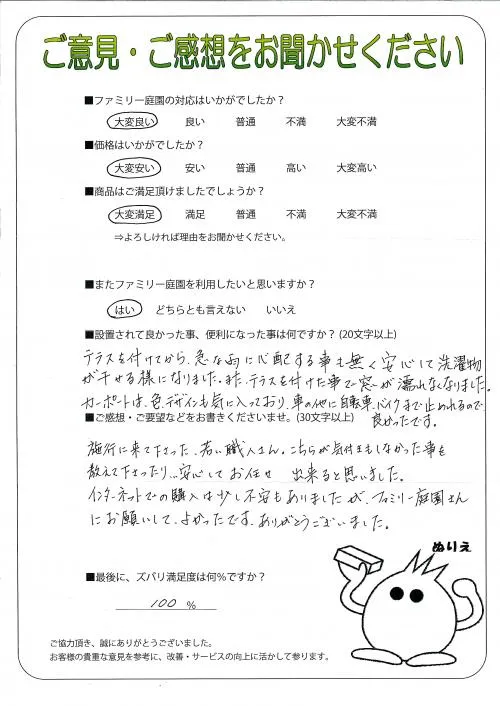 ご意見・ご感想をお聞かせください
■ファミリー庭園の対応はいかがでしたか？
大変良い 良い 普通 不満 大変不満
■価格はいかがでしたか？
大変安い 安い 普通 高い 大変高い
■商品はご満足頂けましたでしょうか？
大変満足 満足 普通 不満 大変不満
⇒よろしければ理由をお聞かせください。
■またファミリー庭園を利用したいと思いますか？
はい どちらとも言えない いいえ
■設置されて良かった事、便利になった事は何ですか？(20文字以上)
テラスを付けてから、急な雨に心配する事も無く安心して洗濯物
が干せる様になりました。また、テラスを付けた事で窓が濡れなくなりました。
カーポートは、色、デザインも気に入っており、車の他に自転車、バイクまで止めれるので
良かったです。
■ご感想・ご要望などをお書きくださいませ。(30文字以上)
施行に来て下さった、若い職人さん。こちらが気付きもしなかった事を
教えて下さったり…安心してお任せ 出来ると思いました。
インターネットでの購入は少し不安もありましたが、ファミリー庭園さん
にお願いして、よかったです。ありがとうございました。
ぬりえ
■最後に、ズバリ満足度は何％ですか？
100 %
ご協力頂き、誠にありがとうございました。
お客様の貴重な意見を参考に、改善・サービスの向上に活かして参ります。